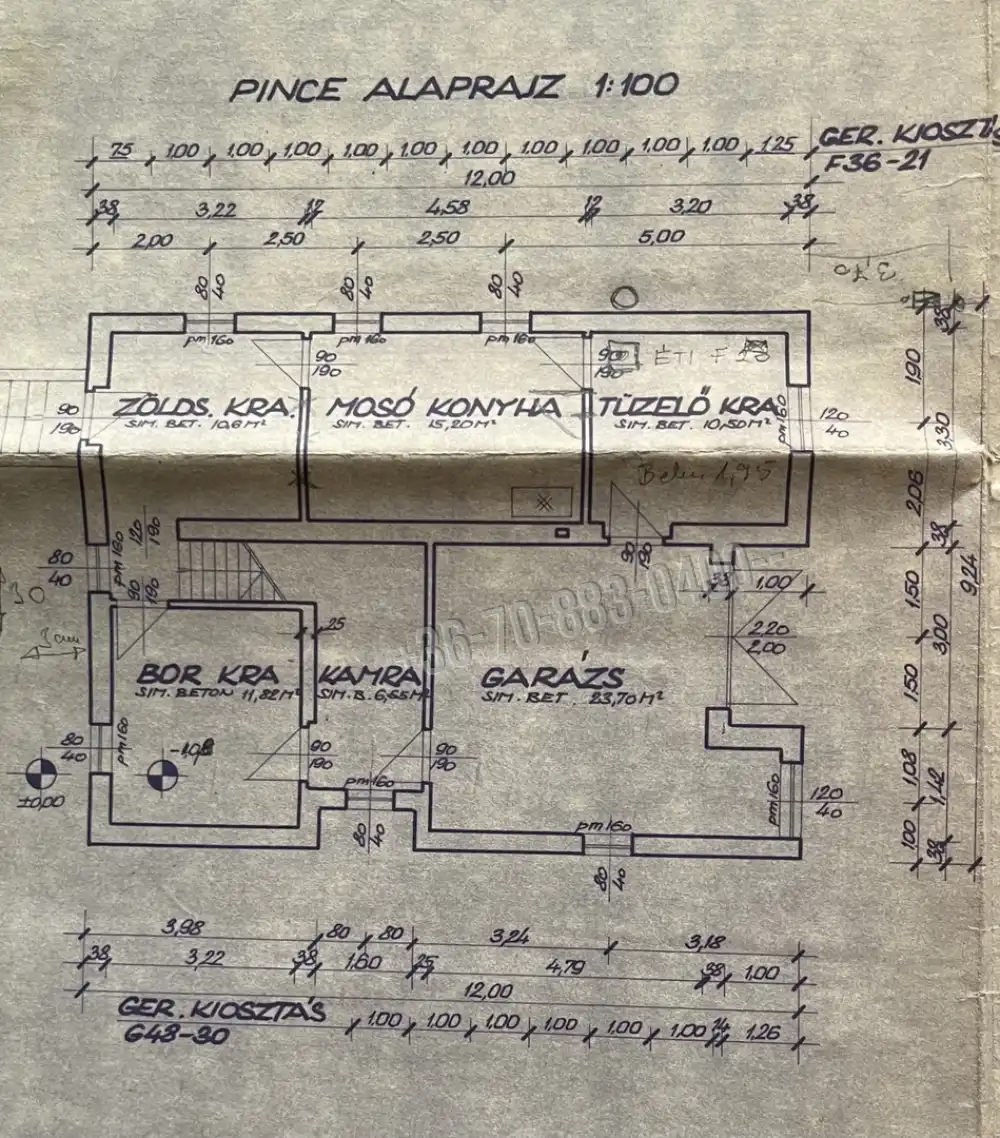 PINCE ALAPRAJZ 1:100
75 1,00 1,00 1,00 1,00 1,00 1,00 1,00 1,00 1,00 1,00 1,25
GER. KIOSZTÁS
F36-21
12,00
38 3,22 12 4,58 12 3,20 38
2,00 2,50 2,50 5,00
3,70
80 40
80 40
80 40
38
pm 160
pm 160
pm 160
90
190
90
190
ÉTI F 25
1,90
90
190
ZÖLDS. KRA.
SIM. BET. 10,6 M²
MOSÓ KONYHA
SIM. BET. 15,20 M²
TÜZELŐ KRA
SIM. BET. 10,50 M²
pm 160
120
40
3,30
1,95
2,06
38
120
190
pm 160
80
40
90
190
90
190
1,00
1,50
9,24
30
3 cm
25
36-70-883-04
2,20
2,00
3,00
BOR KRA
SIM. BETON 11,82 M²
KAMRA
SIM. B. 6,65 M²
GARÁZS
SIM. BET. 23,70 M²
1,50
80
40
pm 160
-1,08
90
190
90
190
±0,00
pm 160
80 40
pm 160
80 40
pm 160
120
40
1,08
1,42
100
38
3,98 80 80 3,24 3,18
38 3,22 38 1,60 25 4,79 38 1,00
12,00
GER. KIOSZTÁS
G43-30
1,00 1,00 1,00 1,00 1,00 1,00 14 1,26